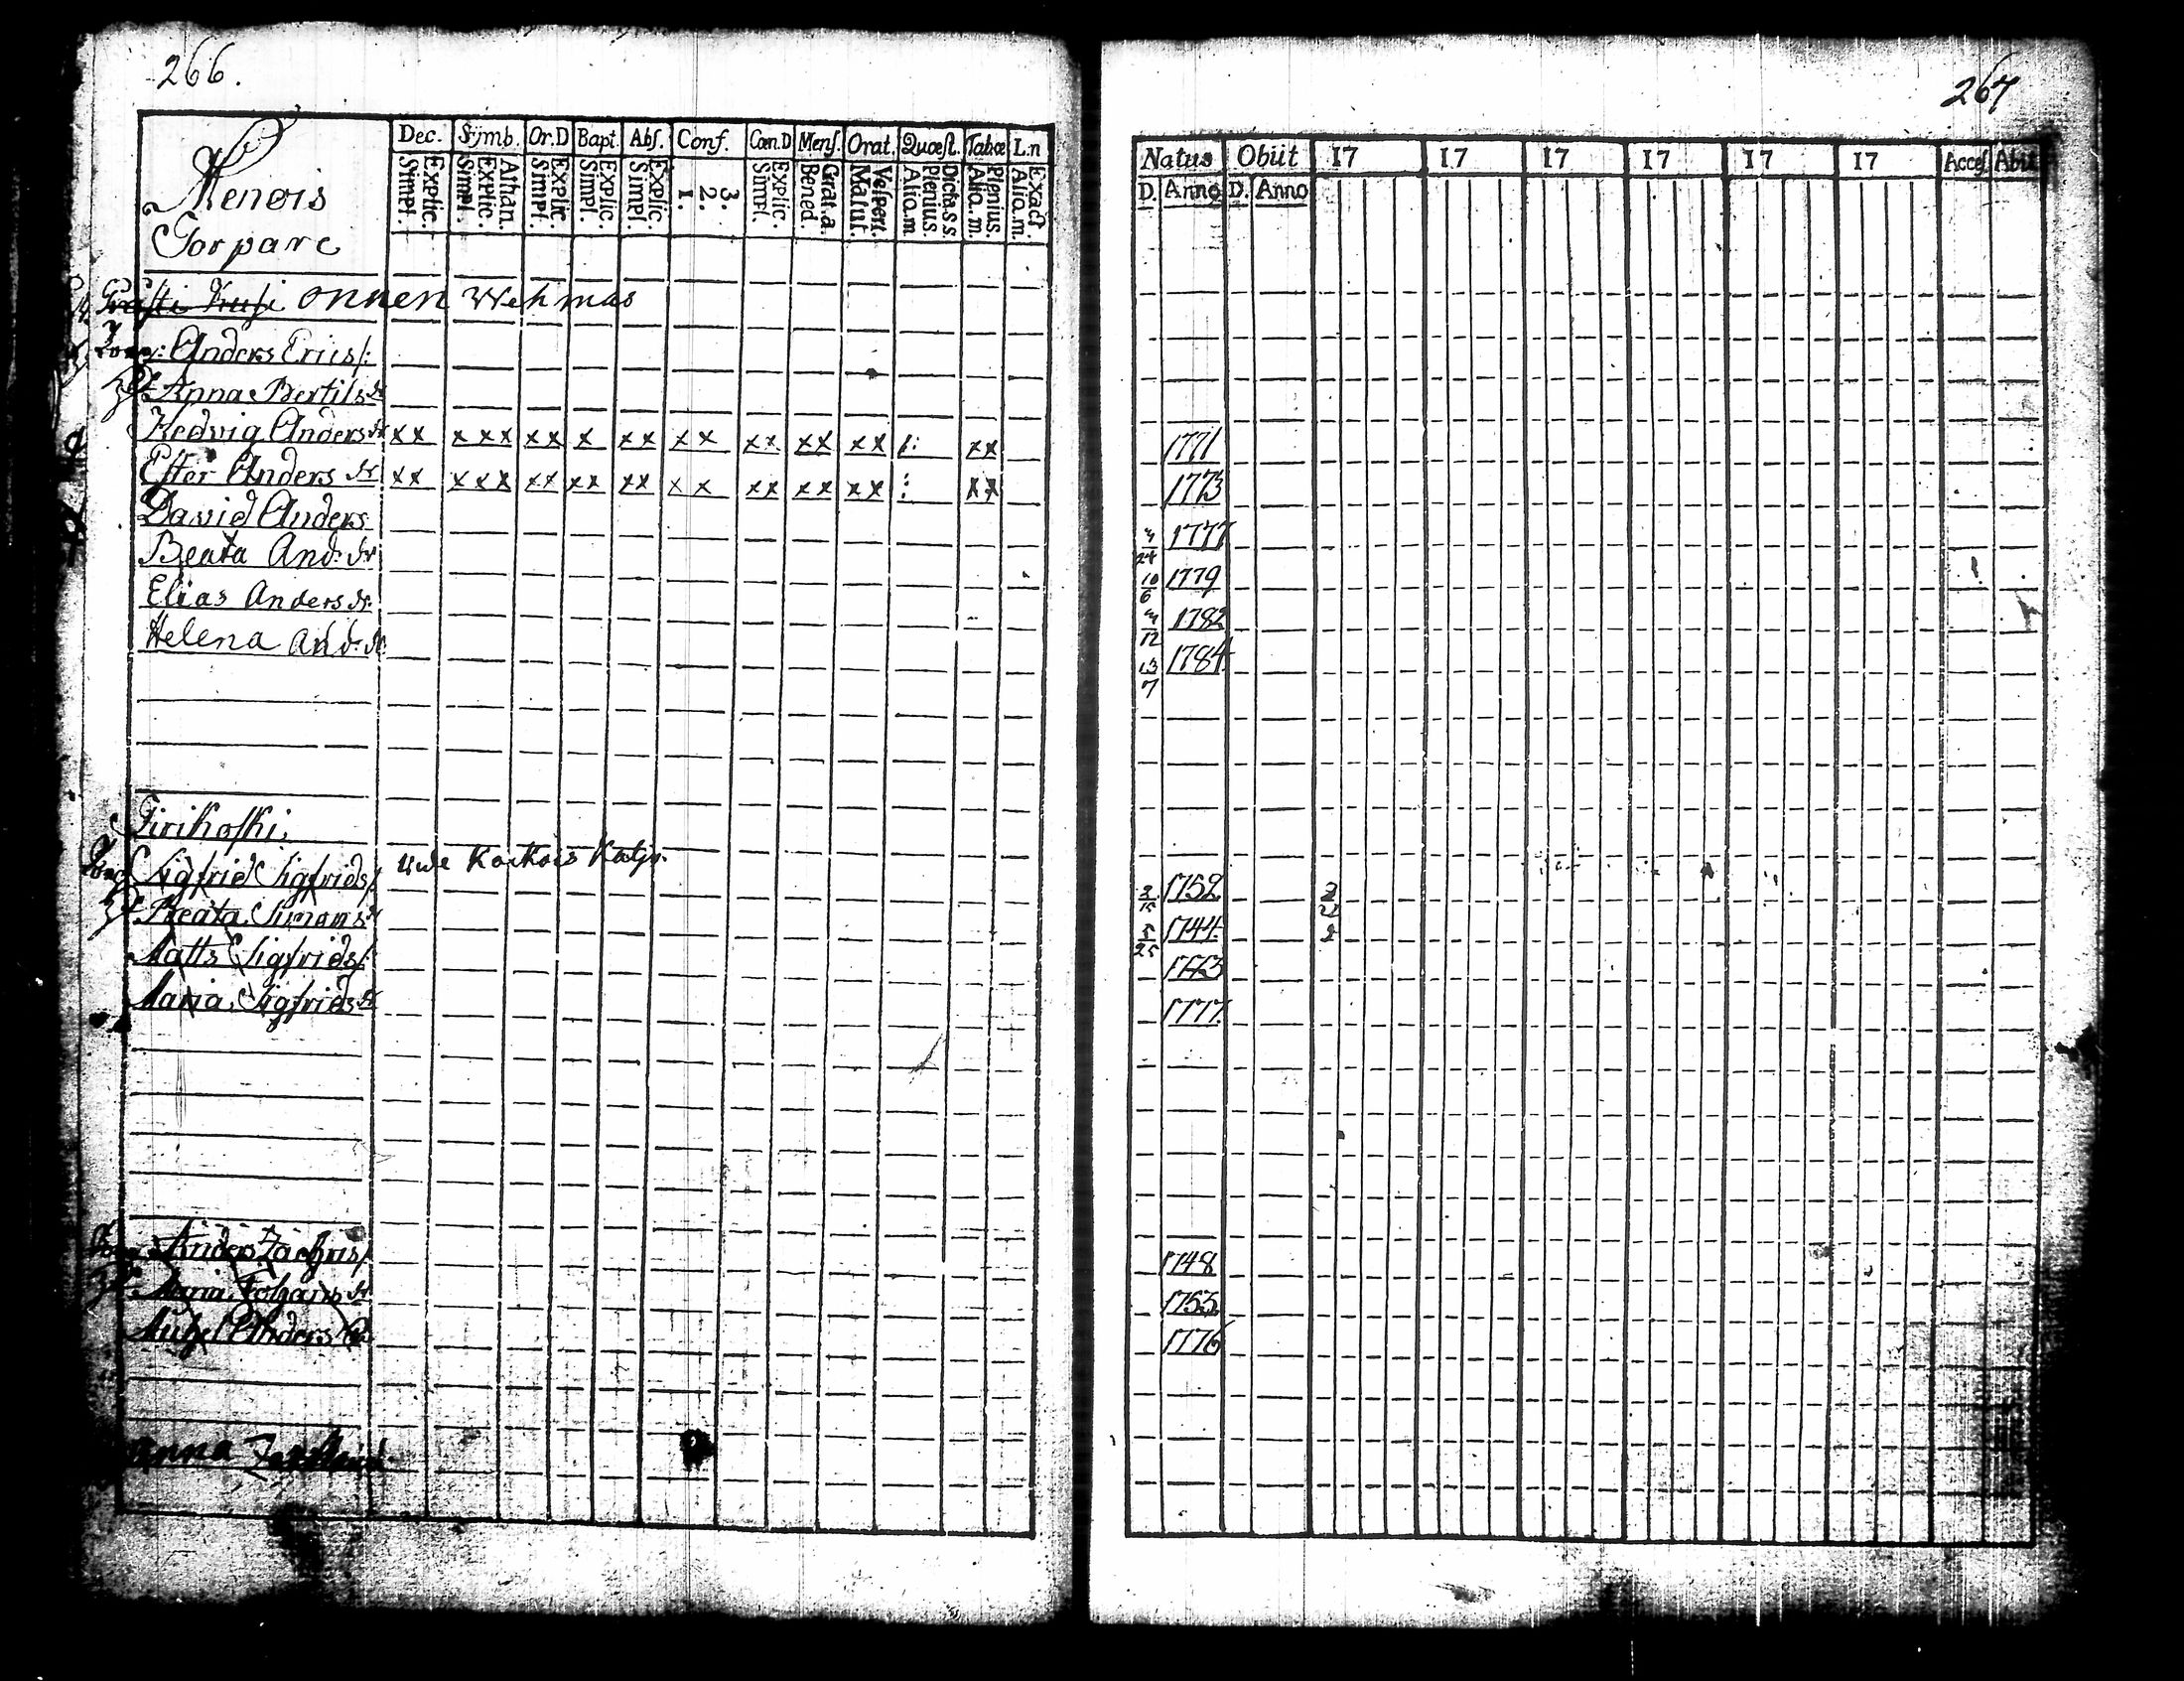 266.
Dec. Sÿmb. Or.D Bapt. Abſ. Conf. Cœn.D Menſ. Orat. Quœſt. Tabœ L:n
Explic. Simpl. Athan. Explic. Simpl. Explic. Simpl. Explic. Simpl. Explic. Simpl. 3. 2. 1. Explic. Simpl. Grat.a. Bened. Veſpert. Matut. Dicta.s.s. Plenius. Aliq.m. Plenius. Aliq.m. Exact. Aliq.m.
Menois
Torpare
onnen Wehmas
Anders Ericsſ:
Anna Bertils dr
Hedvig Anders dr xx xxx xx x xx xx xx xx xx xx
Eſter Anders dr xx xxx xx xx xx xx xx xx xx xx
David Anders
Beata And: dr
Elias Anders
Helena And: dr
Tirikoſki.
Sigfrid Sigfridsſ:
Beata Simons dr
Matts Sigfridsſ:
Maria Sigfrids dr
Anders Zachrisſ:
Maria Johans dr
Anders
Anna
267
Natus Obiit 17 17 17 17 17 17 Acceſ Abit
D. Anno D. Anno
1771
1773
24 1777
10/6 1779
12 1782
13/7 1784.
1752
5/25 1744.
1773
1777.
1748
1753.
1776